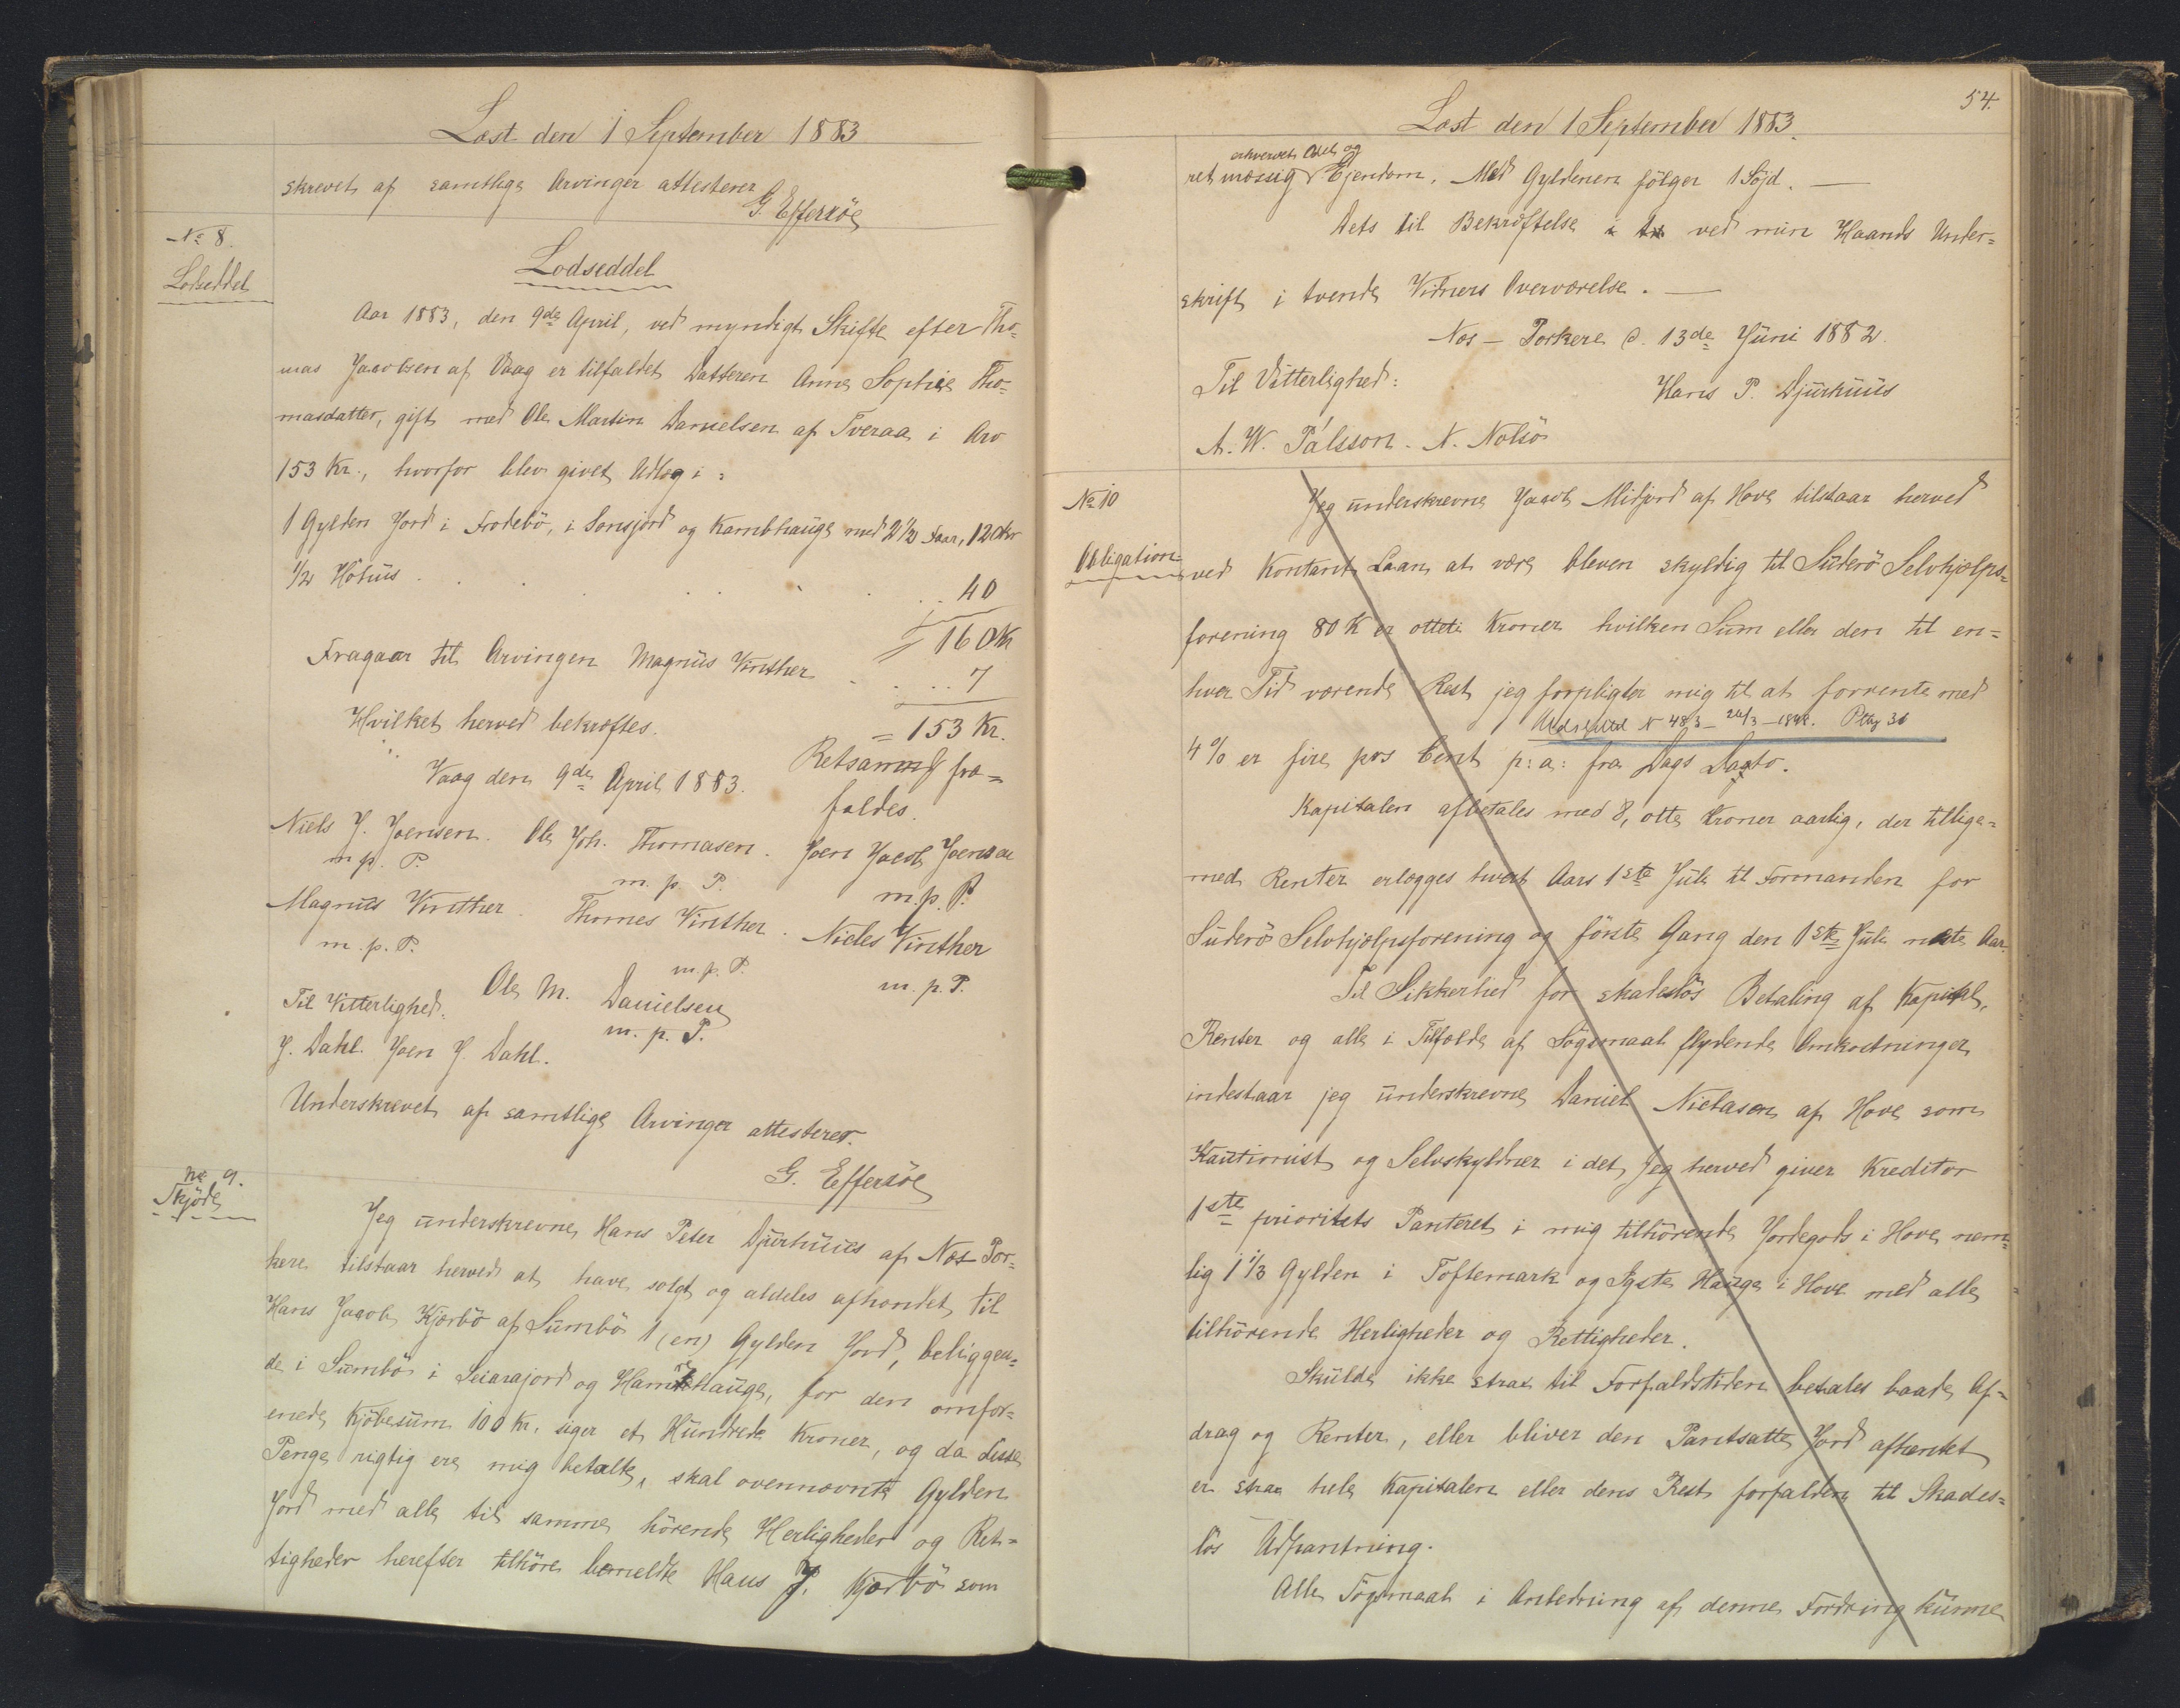 Læst den 1 September 1883
skrevet af samtlige Arvinger attesterer
G. Effersöe
No 8.
Lodseddel
Lodseddel
Aar 1883, den 9de April, ved myndigt Skifte efter Tho-
mas Jacobsen af Vaag er tilfaldet Datteren Anne Sophie Tho-
masdatter, gift med Ole Martin Danielsen af Tveraa i Arv
153 Kr., hvorfor blev givet Udlæg i:
1 Gylden Jord i Frodebö, i Sonsjord og Kambhauge med 2 1/2 Faar, 120 Kr
1/2 Höhus . . . . . . 40
160 Kr
Fragaar til Arvingen Magnus Vinther . . . . 7
= 153 Kr.
Hvilket herved bekræftes.
Vaag den 9de April 1883.
Retsanm fra-
faldes.
Niels J. Joensen. Ole Joh. Thomasen. Joen Jacob Joensen
m. p. P. m. p. P. m. p. P.
Magnus Vinther. Thomes Vinther. Nicles Vinther
m. p. P. m. p. P. m. p. P.
Til Vitterlighed. Ole M. Danielsen
m. p. P.
J. Dahl. Joen J. Dahl.
Underskrevet af samtlige Arvinger attesterer.
G. Effersöe
No 9.
Skjöde
Jeg underskrevne Hans Peter Djurhuus af Næs Por-
kere tilstaar herved at have solgt og aldeles afhændet til
Hans Jacob Kjærbö af Sumbö 1 (en) Gylden Jord, beliggen-
de i Sumbö i Leiarajord og Hamrehauge, for den omfor-
enede Kjöbesum 100 Kr. siger et Hundrede Kroner, og da disse
Penge rigtig ere mig betalte, skal ovennævnte Gylden
Jord med alle til samme hörende Herligheder og Ret-
tigheder herefter tilhöre bemeldte Hans J. Kjærbö som
54.
Læst den 1 September 1883.
erhvervet Odel og
ret mæssig Ejendom. Med Gyldenen fölger 1 Söjd. —
Dets til Bekræftelse ved min Haands Under-
skrift i tvende Vidners Overværelse. —
Næs – Porkere d. 13de Juni 1882.
Til Vitterlighed: Hans P. Djurhuus
A. W. Pálsson. N. Nolsö
No 10
Obligation
Jeg underskrevne Jacob Midjord af Hove tilstaar herved
ved Kontant Laan at være bleven skyldig til Suderö Selvhjælps-
forening 80 K er otteti Kroner hvilken Sum eller den til en-
hver Tid værende Rest jeg forpligter mig til at forrente med
Udslettet N 483 – 20/3 – 1898. Ptbg 30
4 % er fire pros Cent p: a: fra Dags Dagto.
Kapitalen afbetales med 8, otte Kroner aarlig, der tillige-
med Renter erlægges hvert Aars 1ste Juli til Formanden for
Suderö Selvhjælpsforening og förste Gang den 1ste Juli næste Aar.
Til Sikkerhed for skadeslös Betaling af Kapital,
Renter og alle i Tilfælde af Sögsmaal flydende Omkostninger
indestaar jeg underskrevne Daniel Nielasen af Hove som
Kautionist og Selvskyldner i det jeg herved giver Kreditor
1ste prioritets Panteret i mig tilhörende Jordegods i Hove nem-
lig 1 1/3 Gylden i Toftemark og Igste Hauge i Hove med alle
tilhörende Herligheder og Rettigheder.
Skulde ikke strax til Forfaldstiden betales baade Af-
drag og Renter, eller bliver den Pantsatte Jord afhentet
er strax hele Kapitalen eller dens Rest forfalden til Skades-
lös Udpantning.
Alle Sögsmaal i Anledning af denne Fordring kunne